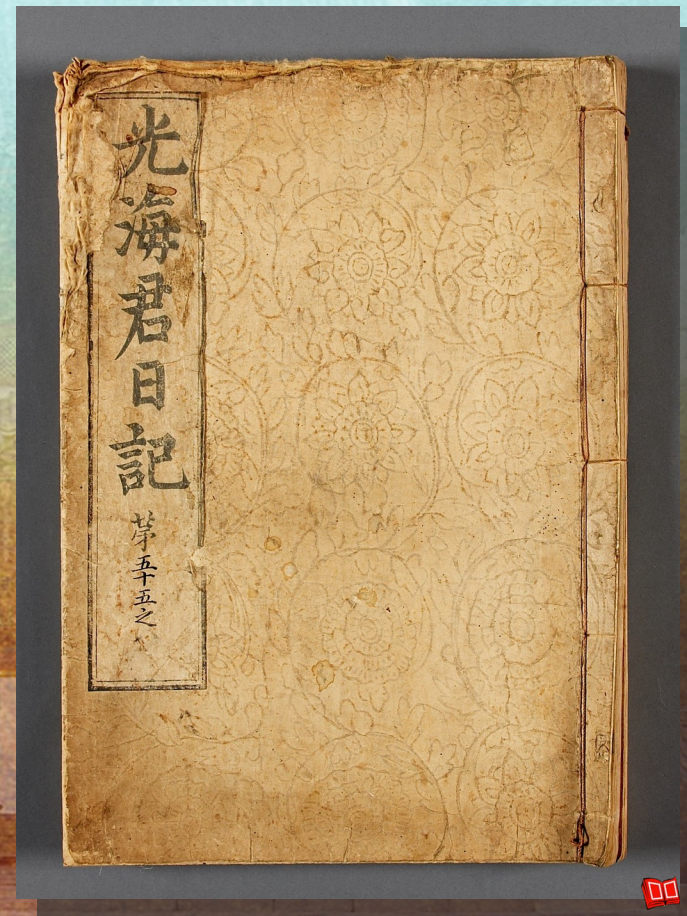 光海君日記 第五十五之